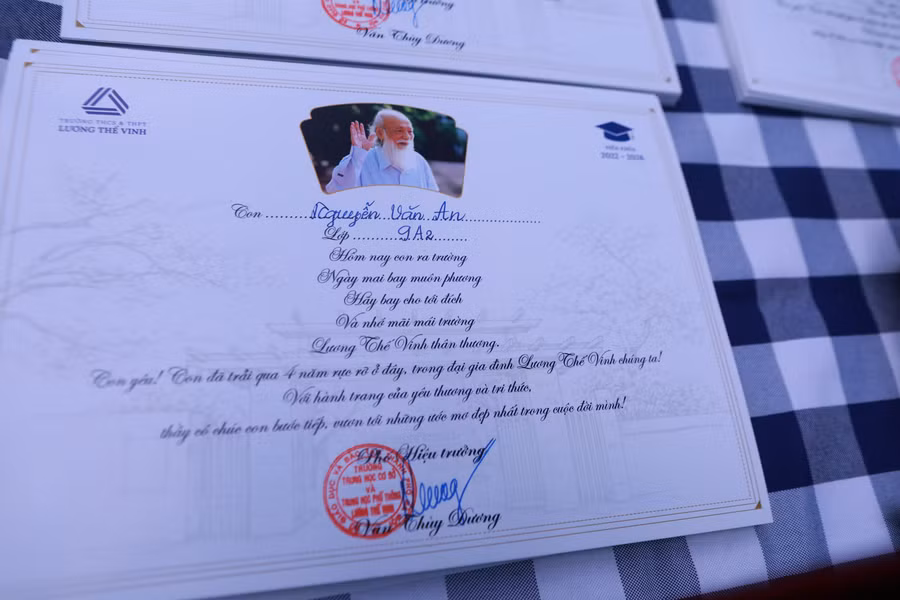 Văn Thùy Dương
TRƯỜNG THCS & THPT
LƯƠNG THẾ VINH
NIÊN KHÓA
2022 - 2026
Con Nguyễn Văn An
Lớp 9A2
Hôm nay con ra trường
Ngày mai bay muôn phương
Hãy bay cho tới đích
Và nhớ mãi mái trường
Lương Thế Vinh thân thương.
Con yêu! Con đã trải qua 4 năm rực rỡ ở đây, trong đại gia đình Lương Thế Vinh chúng ta!
Với hành trang của yêu thương và tri thức,
thầy cô chúc con bước tiếp, vươn tới những ước mơ đẹp nhất trong cuộc đời mình!
Phó Hiệu trưởng
TRƯỜNG
TRUNG HỌC CƠ SỞ
VÀ
TRUNG HỌC PHỔ THÔNG
LƯƠNG THẾ VINH
Văn Thùy Dương